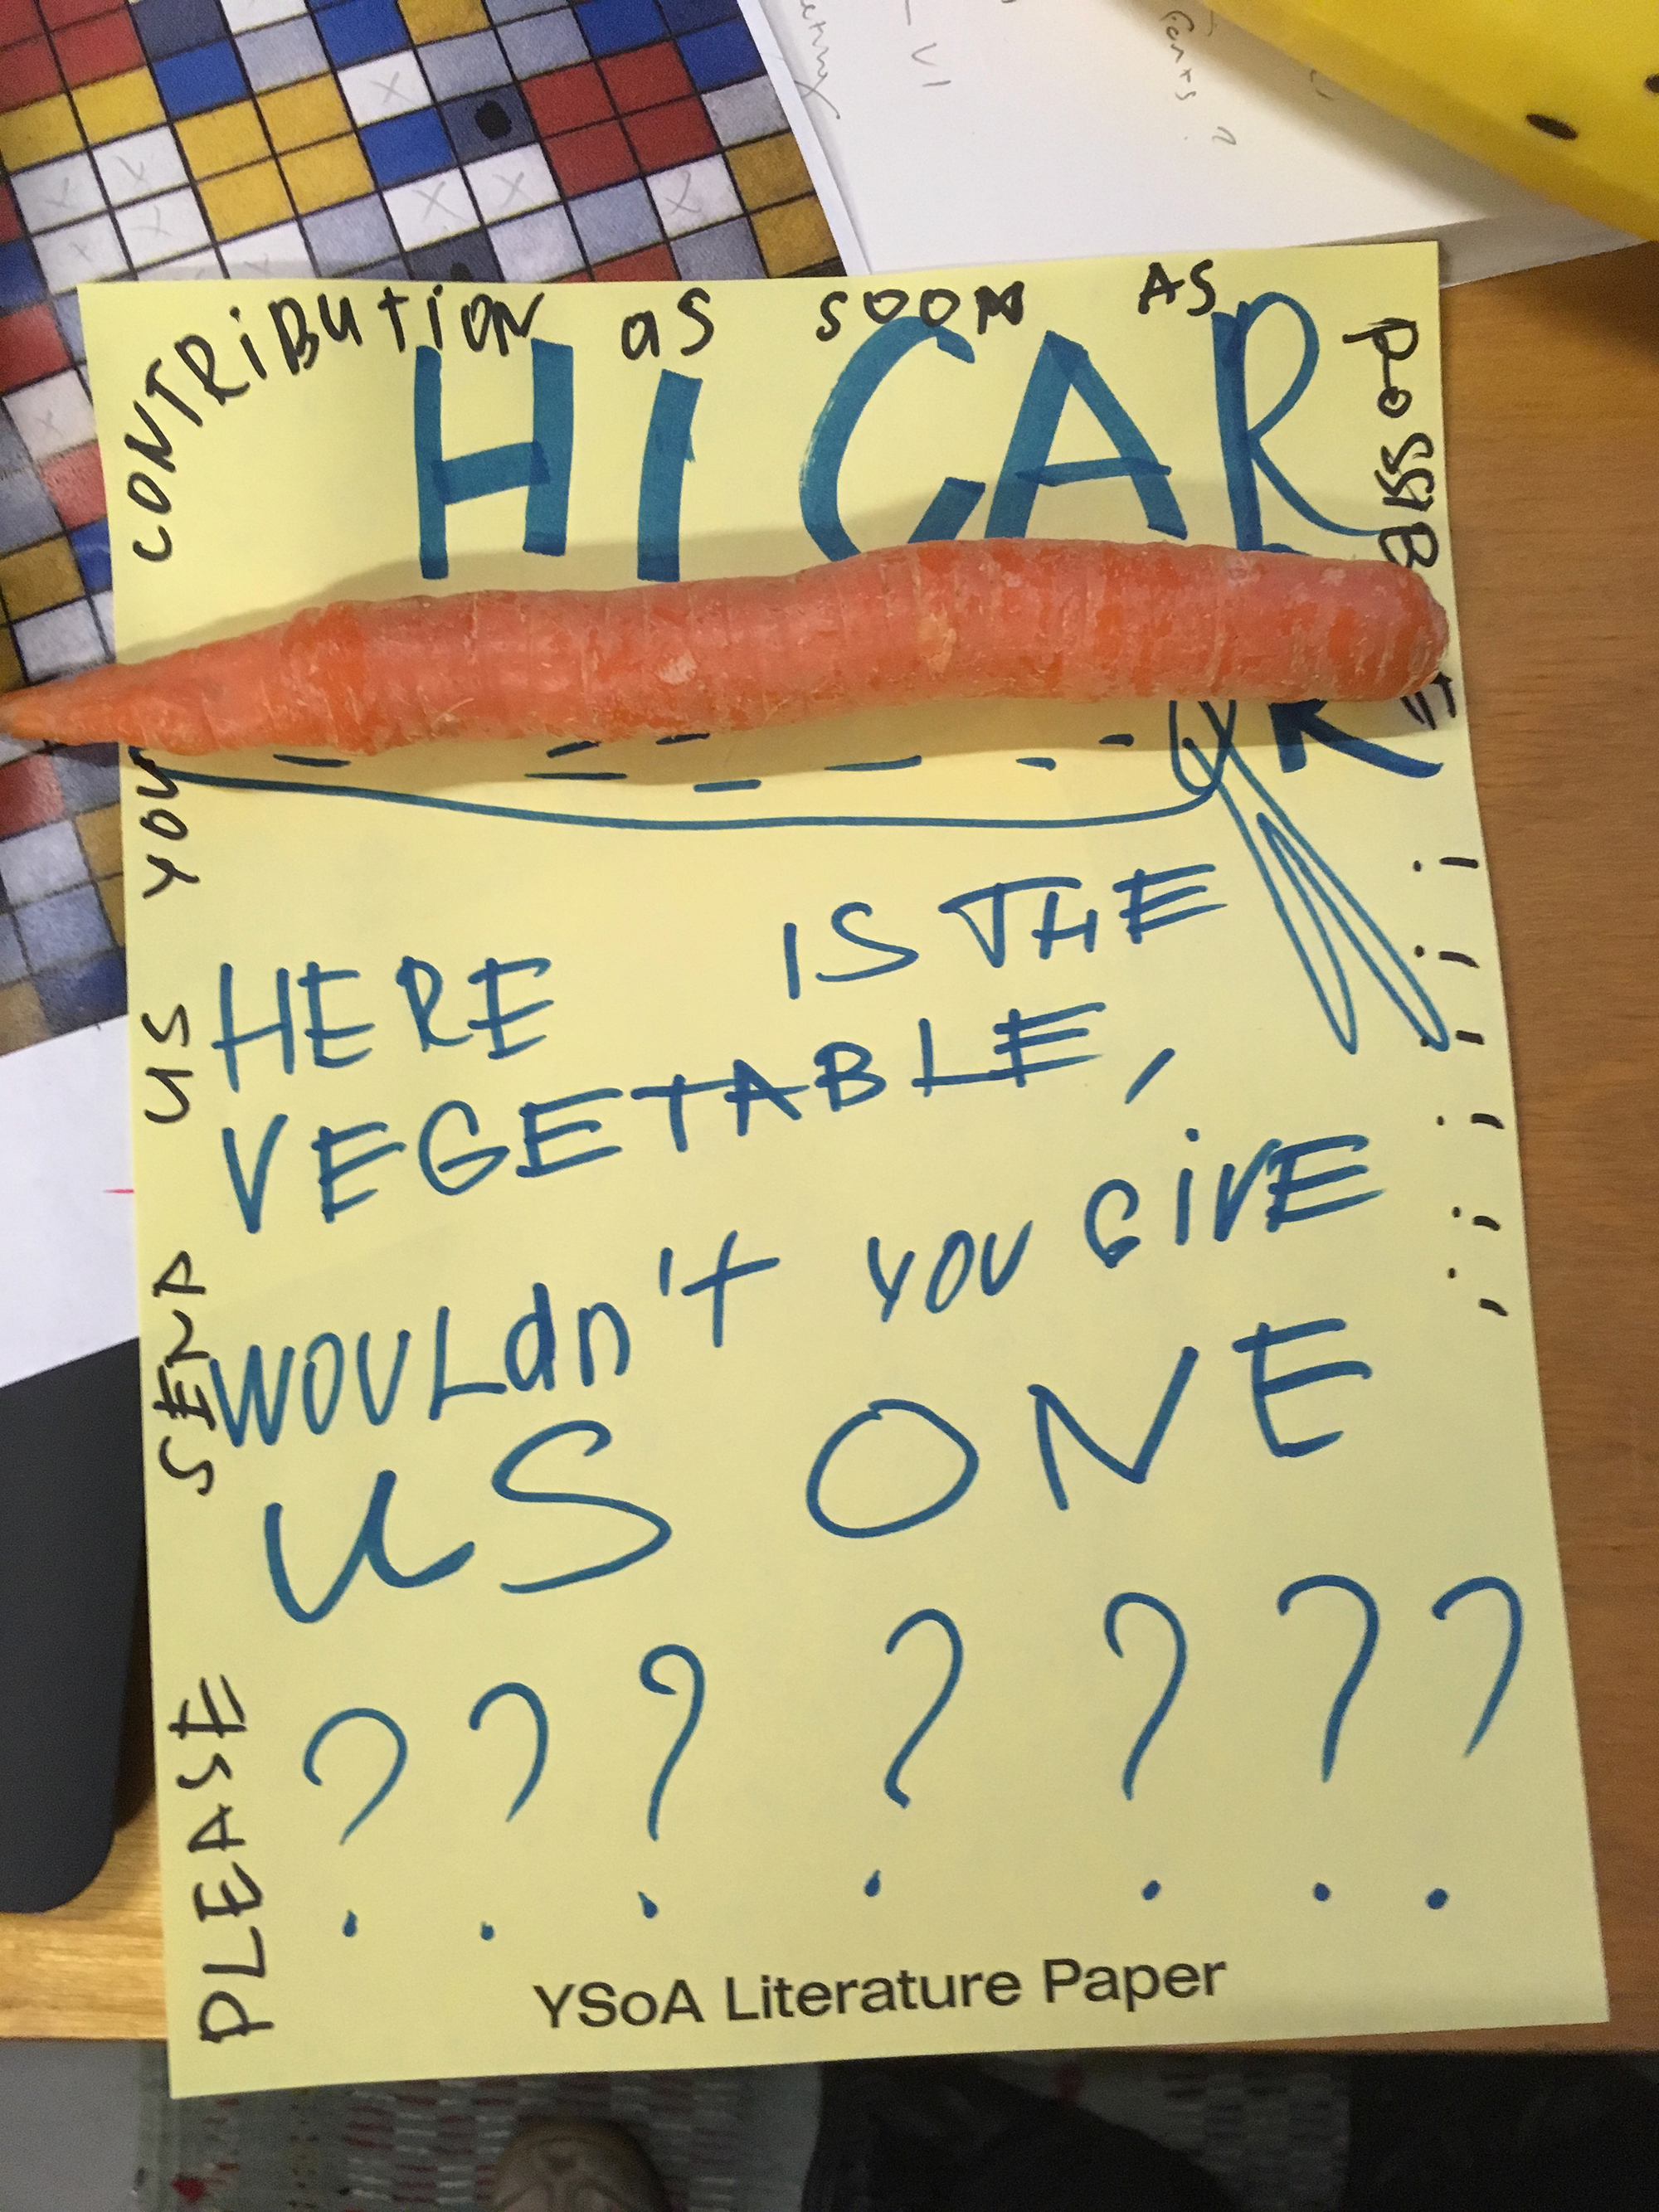 HI CAR
R
HERE IS THE
VEGETABLE,
WOULDn't YOU GIVE
US ONE
???????
PLEASE SEND US YOU
CONTRIBUTION as SOON AS
POSSIB
YSoA Literature Paper